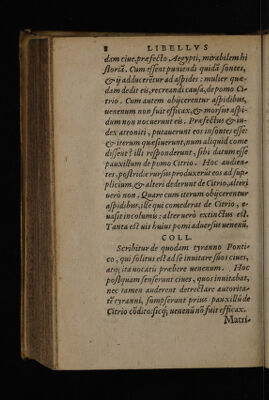 8 LIBELLVS
dam ciue, præfecto Aegypti, mirabilem hi
storiã. Cum essent puniendi quidã sontes,
& ij adducerẽtur ad aspides: mulier quæ-
dam dedit eis, recreandi causa, de pomo Ci-
trio. Cum autem obijcerentur aspidibus,
uenenum non fuit efficax, & morsus aspi-
dum non nocuerunt eis. Præfectus & iu-
dex attoniti, putauerunt eos insontes esse:
& iterum quæsiuerunt, num aliquid come
dissent? illi responderunt, sibi datum esse
pauxillum de pomo Citrio. Hoc audien-
tes, postridie rursus produxerũt eos ad sup-
plicium, & alteri dederunt de Citrio, alteri
uerò non. Quare cum iterum obijcerentur
aspidibus, ille qui comederat de Citrio, e-
uasit incolumis: alter uerò extinctus est.
Tanta est uis huius pomi aduersus uenenũ.
COLL.
Scribitur de quodam tyranno Ponti-
co, qui solitus est ad se inuitare suos ciues,
atq; ita nocatis præbere uenenum. Hoc
postquam senserunt ciues, quos inuitabat,
nec tamen auderent detrectare autorita-
tẽ tyranni, sumpserunt prius pauxillũ de
Citrio cõdito: sicq; uenenũ nõ fuit efficax.
Matri-